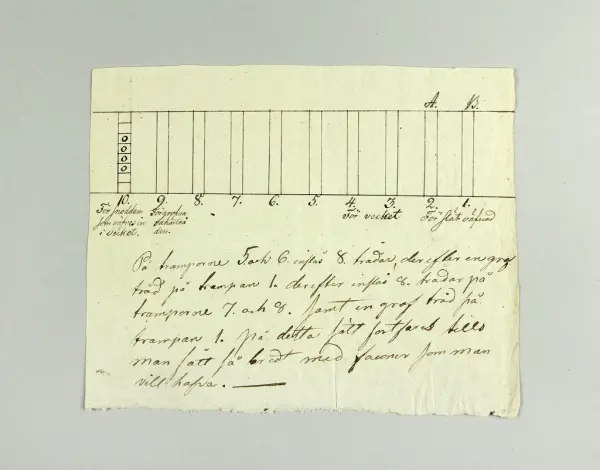 A. B.
o
o
o
o
10. 9. 8. 7. 6. 5. 4. 3. 2. 1.
För snodden som väfves in i vecket.
För grofva
För vecket
För slät väfnad
På tramporne 5 och 6 inslås 8. trådar, derefter en grof
tråd på trampan 1. derefter inslås 8. trådar på
tramporne 7. och 8. samt en grof tråd på
trampan 1. på detta sätt fortfares tills
man fått så bredt med façoner som man
vill hafva.